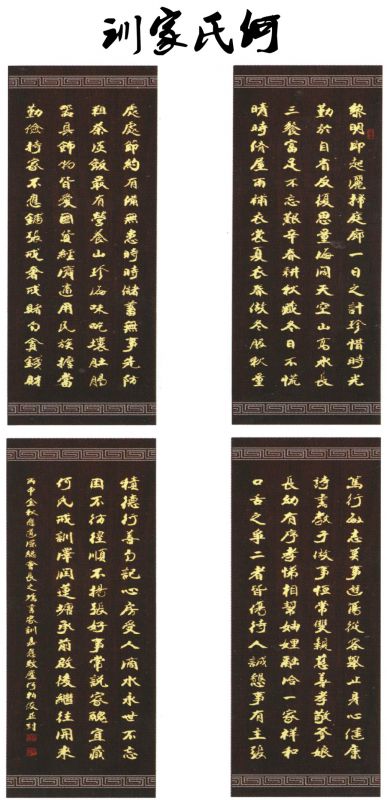 何氏家訓
黎明即起灑掃庭廊一日之計珍惜時光
勤於自省反復思量海闊天空山高水長
三餐富足不忘艱辛春耕秋藏冬日不慌
晴時修屋雨補衣裳夏衣春做冬服秋量
處處節約有備無患時時儲蓄無事先防
粗茶淡飯最有營養山珍海味吃壞肚腸
器具飾物皆愛國貨經濟適用民族擔當
勤儉持家不應鋪張戒奢戒賭勿貪錢財
篤行敏志莫事遊蕩從容舉止身心健康
詩書教子做事恒常雙親慈善孝敬爹娘
長幼有序孝悌相幫妯娌融洽一家祥和
口舌之爭二者皆傷待人誠懇事有主張
積德行善勿記心房受人滴水永世不忘
困不彷徨順不揚張好事常說家醜宜藏
何氏戒訓澤潤蓮塘承前啟後繼往開來
丙申金秋應 總會長之囑書家訓